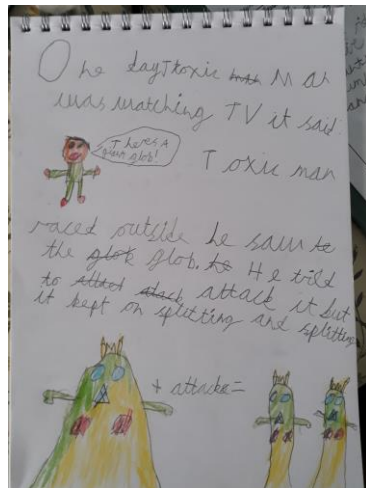 One day Toxic Man
was watching TV it said:
Theres A
green glob!
Toxic man
raced outside he saw to
the glob glob. to He tried
to attack attack it but
it kept on splitting and splitting
+ attack=